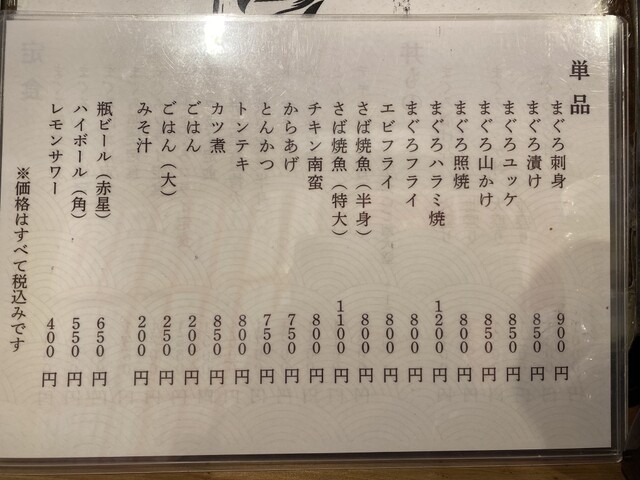 単品
まぐろ刺身 900円
まぐろ漬け 850円
まぐろユッケ 850円
まぐろ山かけ 850円
まぐろ照焼 800円
まぐろハラミ焼 1200円
まぐろフライ 800円
エビフライ 800円
さば焼魚（半身） 800円
さば焼魚（特大） 1100円
チキン南蛮 800円
からあげ 750円
とんかつ 750円
トンテキ 800円
カツ煮 850円
ごはん 200円
ごはん（大） 250円
みそ汁 200円
瓶ビール（赤星） 650円
ハイボール（角） 550円
レモンサワー 400円
※価格はすべて税込みです